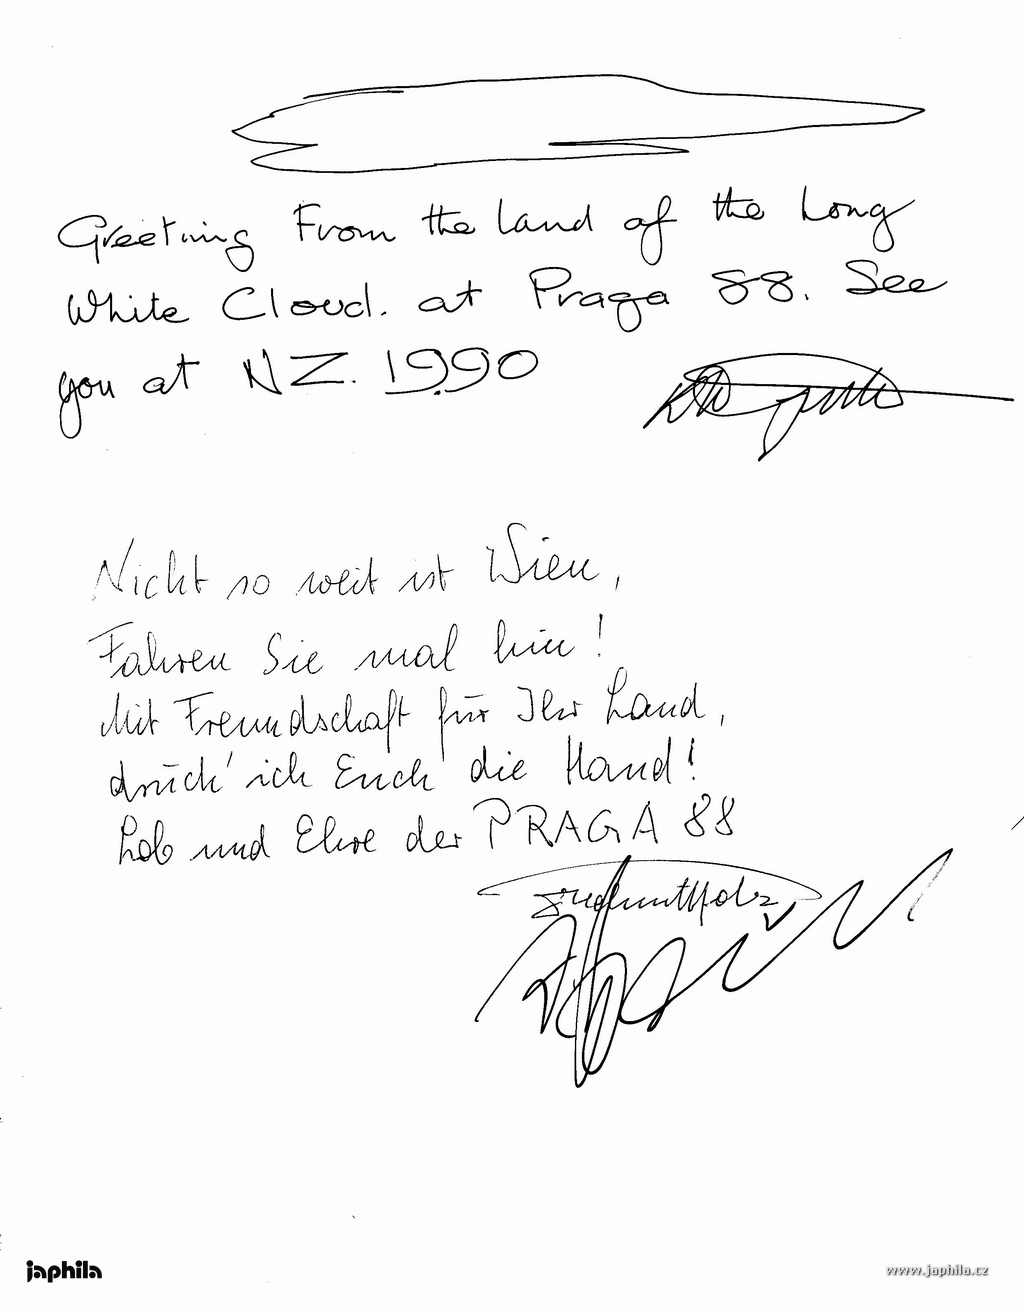 Greeting From the land of the Long
White Cloud. at Praga 88. See
you at NZ. 1990
Nicht so weit ist Wien,
Fahren Sie mal hin!
Mit Freundschaft für Ihr Land,
drück' ich Euch die Hand!
Lob und Ehre der PRAGA 88
japhila
www.japhila.cz